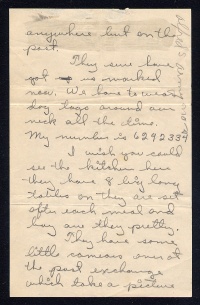 anywhere but on the
post.
They sure have
got us marked
now. We have to wear
dog tags around our
neck all the time.
My number is 6292334
I wish you could
see the kitchen here
they have 8 big long
tables on they are set
after each meal and
boy are they pretty.
They have some
little cameras over at
the post exchange
which take a picture